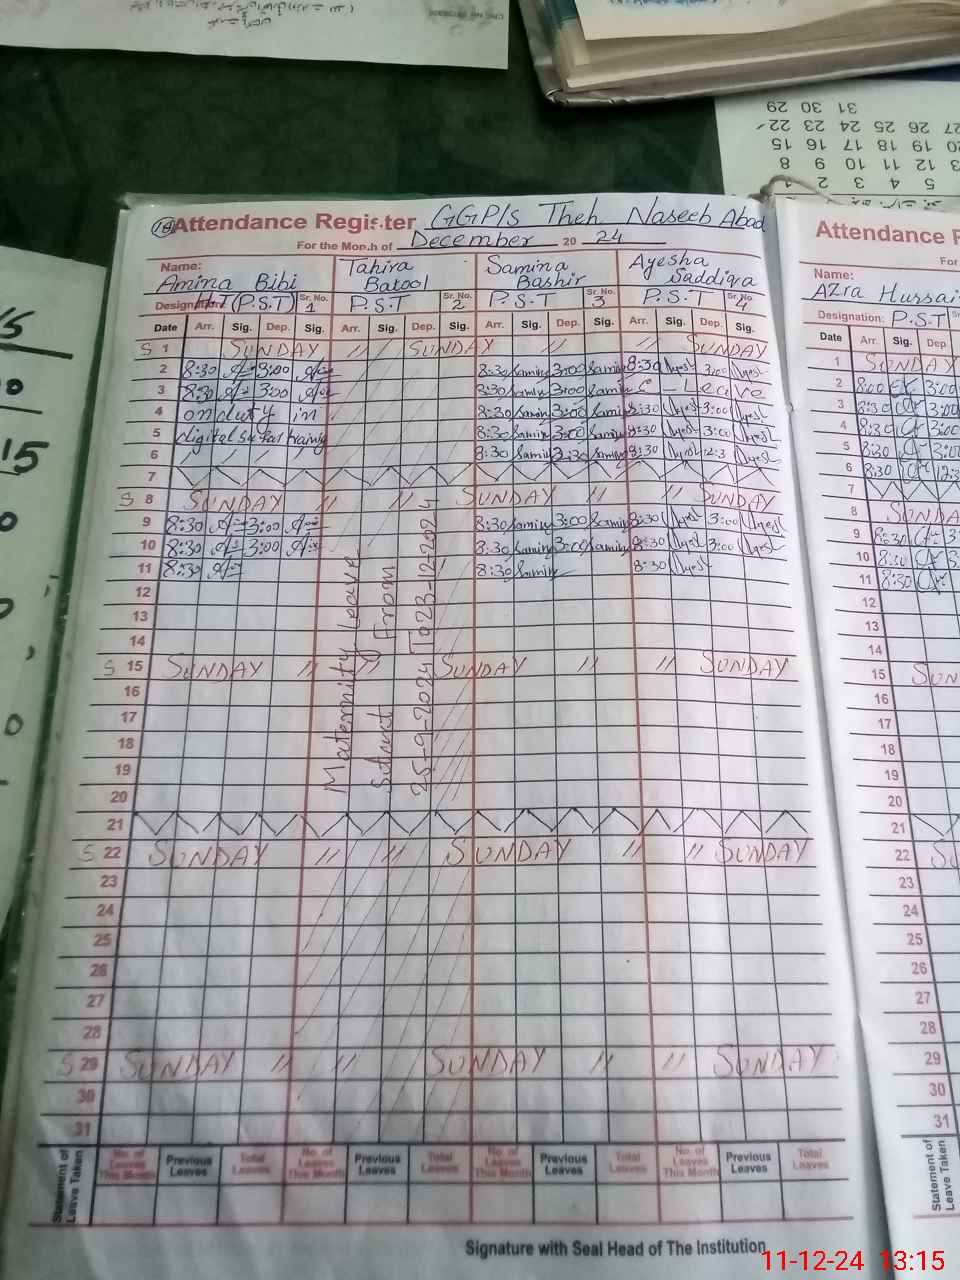 31 30 29
27 26 25 24 23 22
20 19 18 17 16 15
13 12 11 10 9 8
5 4 3 2 1
Attendance Register GGP/S Theh Naseeb Abad
For the Month of December 20 24
Name: Amina Bibi Tahira Batool Samina Bashir Ayesha Saddiqa
Designation: (P.S.T) Sr. No. 1 P.S.T Sr. No. 2 P.S.T Sr. No. 3 P.S.T Sr. No. 4
Date Arr. Sig. Dep. Sig. Arr. Sig. Dep. Sig. Arr. Sig. Dep. Sig. Arr. Sig. Dep. Sig.
S 1 SUNDAY // SUNDAY // // SUNDAY
2 8:30 3:00 8:30 Samina 3:00 Samina 8:30 3:00
3 8:30 3:00 8:30 Samina 3:00 Samina C - Leave
4 on duty in 8:30 Samina 3:00 Samina 8:30 3:00
5 digital training 8:30 Samina 3:00 Samina 8:30 3:00
6 8:30 Samina 12:30 Samina 8:30 12:3
7
S 8 SUNDAY // // SUNDAY // // SUNDAY
9 8:30 3:00 8:30 Samina 3:00 Samina 8:30 3:00
10 8:30 3:00 8:30 Samina 3:00 Samina 8:30 3:00
11 8:30 8:30 Samina 8:30
12
13
14
S 15 SUNDAY // // SUNDAY // // SUNDAY
16
17
18
19
20
21
S 22 SUNDAY // // SUNDAY // // SUNDAY
23
24
25
26
27
28
S 29 SUNDAY // // SUNDAY // // SUNDAY
30
31
Maternity Leave
From
25-9-2024 To 23-12-2024
Statement of Leave Taken
No. of Leaves This Month Previous Leaves Total Leaves No. of Leaves This Month Previous Leaves Total Leaves No. of Leaves This Month Previous Leaves Total Leaves No. of Leaves This Month Previous Leaves Total Leaves
Signature with Seal Head of The Institution
Attendance R
For
Name:
Azra Hussai
Designation: P.S.T
Date Arr. Sig. Dep.
1 SUNDA
2 8:00 3:00
3 8:30 3:00
4 8:30 3:00
5 8:30 3:00
6 8:30 12:3
7
8 SUNDA
9 8:30
10 8:30
11 8:30
12
13
14
15 SUN
16
17
18
19
20
21
22 SU
23
24
25
26
27
28
29
30
31
Statement of Leave Taken
11-12-24 13:15